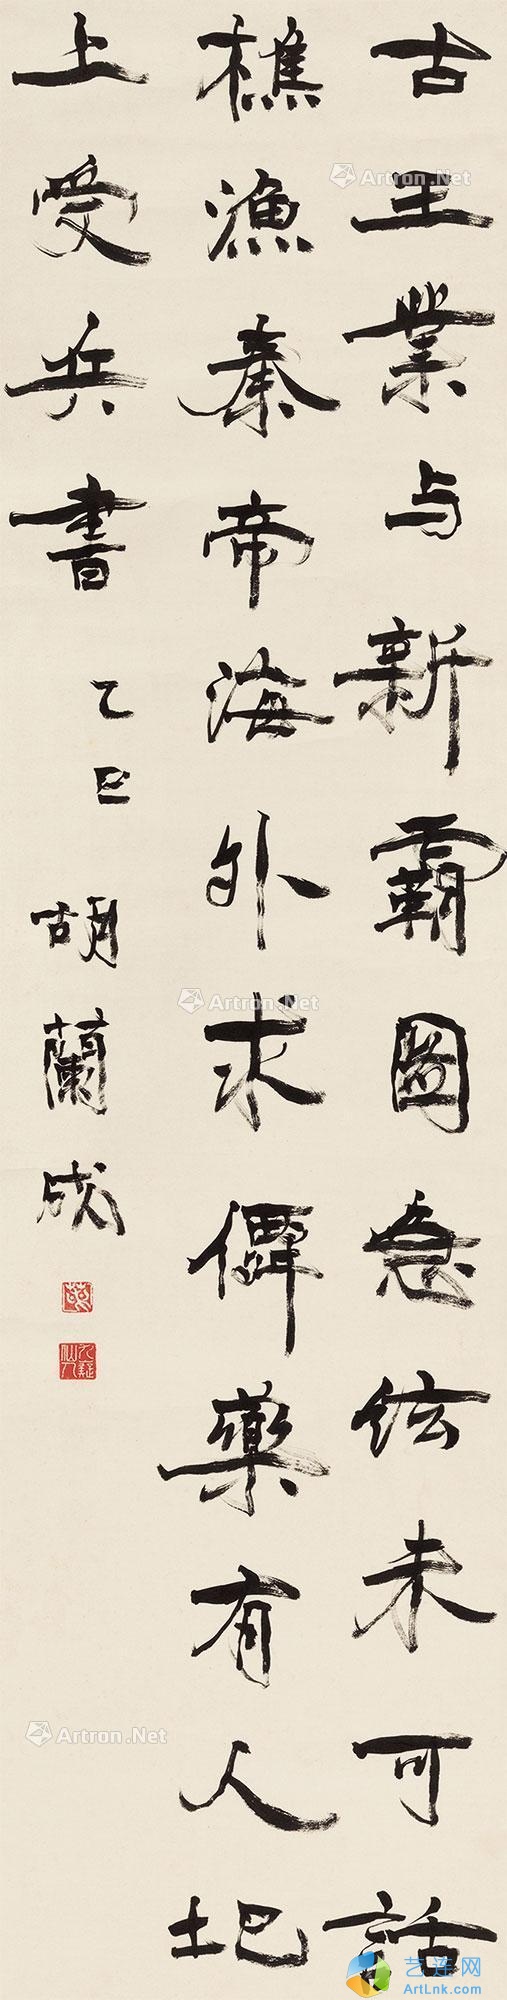 古王业与新霸图急弦未可話
樵渔秦帝海外求僊藥有人圯
上受兵書
乙巳
胡蘭成
Artron.Net
Artron.Net
Artron.Net
艺连网
ArtLnk.com